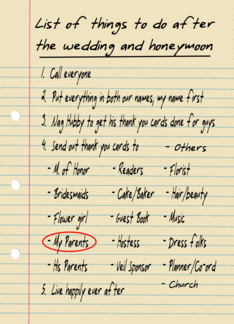 List of things to do after
the wedding and honeymoon
1. Call everyone
2. Put everything in both our names, my name first
3. Nag Hubby to get his thank you cards done for guys
4. Send out thank you cards to - Others
- M. of Honor - Readers - Florist
- Bridesmaids - Cake/Baker - Hair/beauty
- Flower girl - Guest Book - Music
- My Parents - Hostess - Dress folks
- His Parents - Veil Sponsor - Planner/Co-ord
- Church
5. Live happily ever after